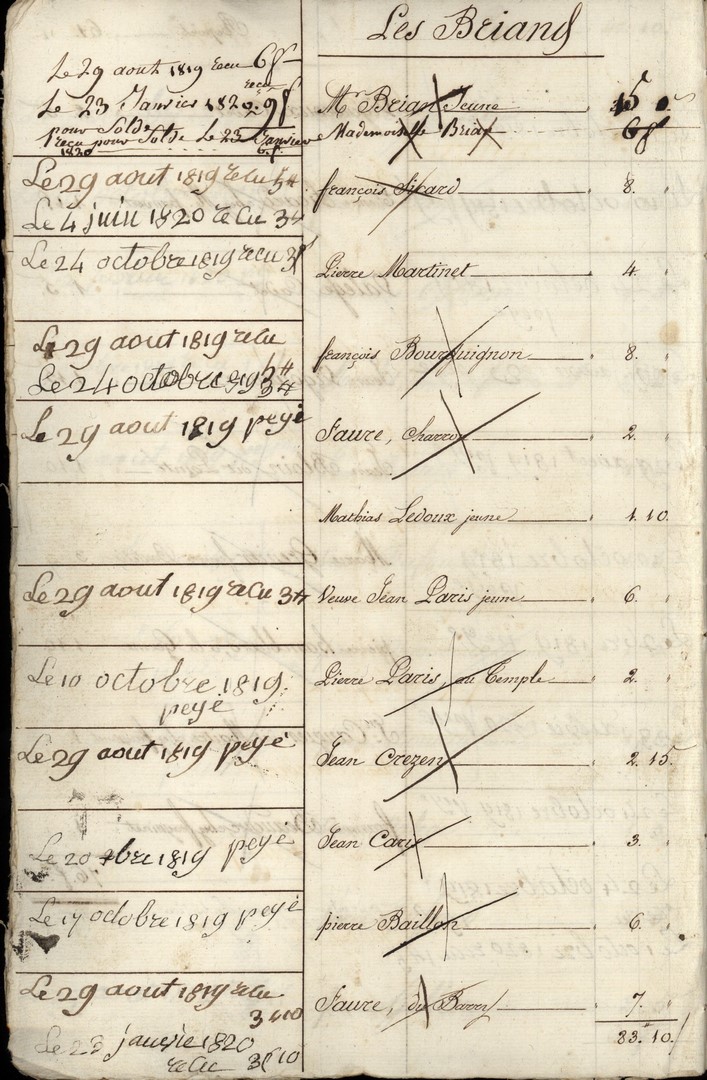 Les Briand
Le 29 aout 1819 recu 6f
recu
Le 23 Janvier 1820. 9f
Mr Brian Jeune 15 0
pour Solde
recu pour Solde Le 23 Janvier
1820 6f
Mademoiselle Brian 6f
Le 29 aout 1819 recu 5#
Le 4 juin 1820 recu 3#
françois Sicard 8.
Le 24 octobre 1819 recu 3f
Pierre Martinet 4.
Le 29 aout 1819 recu
Le 24 octobre 1819 3#
françois Bourguignon 8.
Le 29 aout 1819 peyé
Faure, charron 2.
Mathias Ledoux jeune 1. 10.
Le 29 aout 1819 recu 3#
Veuve Jean Paris jeune 6.
Le 10 octobre 1819
peyé
Pierre Paris, au Temple 2.
Le 29 aout 1819 peyé
Jean Crezen 2. 15.
Le 20 bre 1819 peyé
Jean Caris 3.
Le 17 octobre 1819 peyé
pierre Baillon 6.
Le 29 aout 1819 recu
3#10
Faure, du Barry 7.
Le 23 janvie 1820
recu 3f10
83. 10